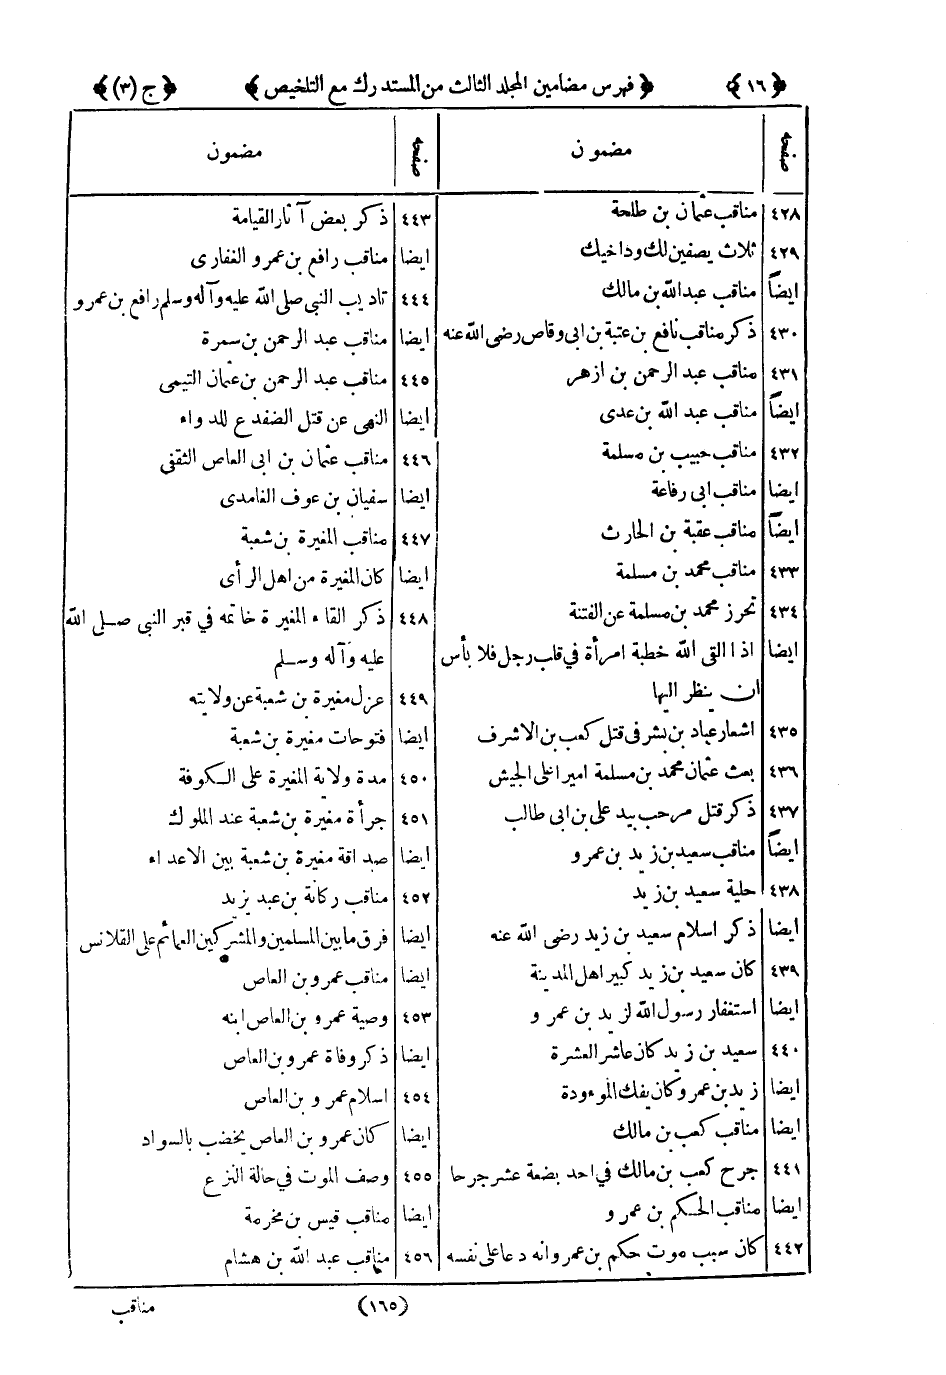 ﴿١٦﴾ ﴿ فهرس مضامين المجلد الثالث من المستدرك مع التلخيص ﴾ ﴿ج (٣)﴾
صفحه مضمون
٤٢٨ مناقب عثمان بن طلحة
٤٢٩ ثلاث يصفين لك ود اخيك
ايضاً مناقب عبد الله بن مالك
٤٣٠ ذكر مناقب نافع بن عتبة بن ابى وقاص رضى الله عنه
٤٣١ مناقب عبد الرحمن بن ازهر
ايضاً مناقب عبد الله بن عدى
٤٣٢ مناقب حبيب بن مسلمة
ايضا مناقب ابى رفاعة
ايضاً مناقب عقبة بن الحارث
٤٣٣ مناقب محمد بن مسلمة
٤٣٤ تحرز محمد بن مسلمة عن الفتنة
ايضا اذا القى الله خطبة امرأة في قلب رجل فلا بأس
ان ينظر اليها
٤٣٥ اشعار عباد بن بشر فى قتل كعب بن الاشرف
٤٣٦ بعث عثمان محمد بن مسلمة اميرا على الجيش
٤٣٧ ذكر قتل مرحب بيد على بن ابى طالب
ايضاً مناقب سعيد بن زيد بن عمرو
٤٣٨ حلية سعيد بن زيد
ايضا ذكر اسلام سعيد بن زيد رضى الله عنه
٤٣٩ كان سعيد بن زيد كبير اهل المدينة
ايضا استغفار رسول الله لزيد بن عمرو
٤٤٠ سعيد بن زيد كان عاشر العشرة
ايضا زيد بن عمرو كان يفك الموءودة
ايضا مناقب كعب بن مالك
٤٤١ جرح كعب بن مالك في احد بضعة عشر جرحا
ايضا مناقب الحكم بن عمرو
٤٤٢ كان سبب موت حكم بن عمرو انه دعا على نفسه
صفحه مضمون
٤٤٣ ذكر بعض آثار القيامة
ايضا مناقب رافع بن عمرو الغفارى
٤٤٤ تاديب النبى صلى الله عليه وآله وسلم رافع بن عمرو
ايضا مناقب عبد الرحمن بن سمرة
٤٤٥ مناقب عبد الرحمن بن عثمان التيمى
ايضا النهى عن قتل الضفدع للدواء
٤٤٦ مناقب عثمان بن ابى العاص الثقفى
ايضا سفيان بن عوف الغامدى
٤٤٧ مناقب المغيرة بن شعبة
ايضا كان المغيرة من اهل الرأى
٤٤٨ ذكر القاء المغيرة خاتمه في قبر النبى صلى الله
عليه وآله وسلم
٤٤٩ عزل مغيرة بن شعبة عن ولايته
ايضا فتوحات مغيرة بن شعبة
٤٥٠ مدة ولاية المغيرة على الكوفة
٤٥١ جرأة مغيرة بن شعبة عند الملوك
ايضا صداقة مغيرة بن شعبة بين الاعداء
٤٥٢ مناقب ركانة بن عبد يزيد
ايضا فرق ما بين المسلمين والمشركين العمائم على القلانس
ايضا مناقب عمرو بن العاص
٤٥٣ وصية عمرو بن العاص ابنه
ايضا ذكر وفاة عمرو بن العاص
٤٥٤ اسلام عمرو بن العاص
ايضا كان عمرو بن العاص يخضب بالسواد
٤٥٥ وصف الموت في حالة النزع
ايضا مناقب قيس بن مخرمة
٤٥٦ مناقب عبد الله بن هشام
(١٦٥) مناقب